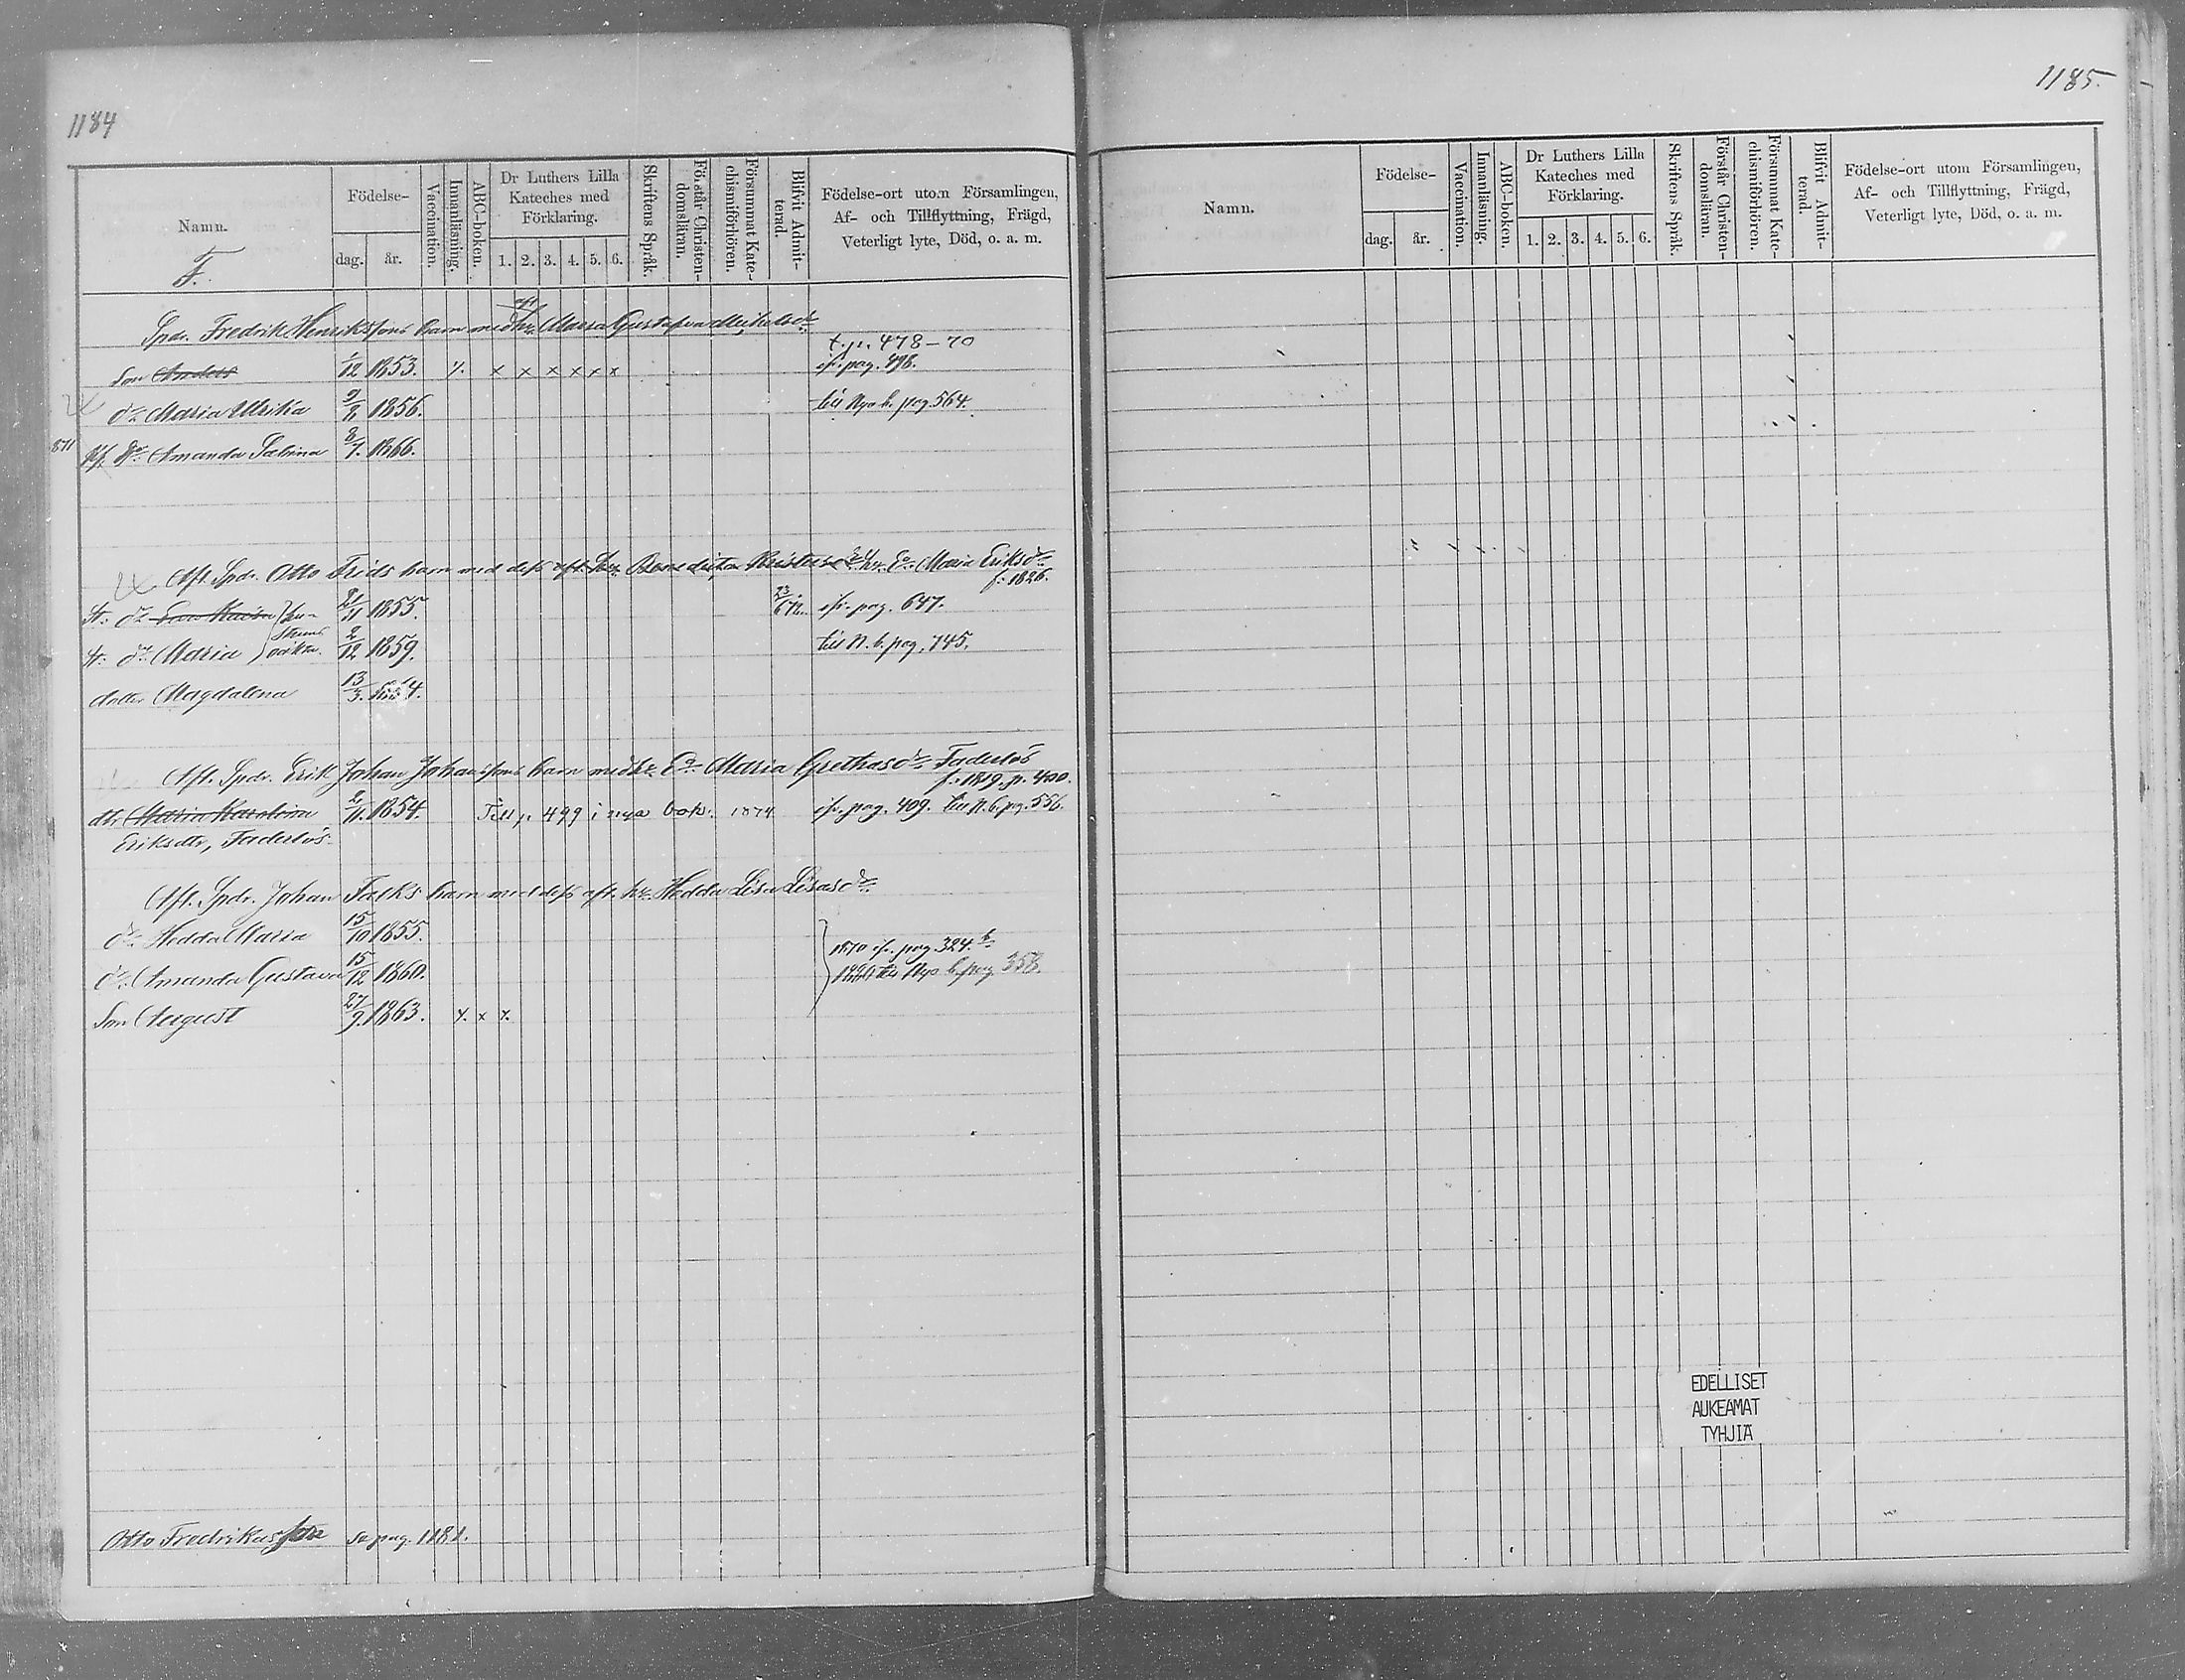 1184
Namn.
F.
Födelse-
dag.
år.
Vaccination.
Innanläsning.
ABC-boken.
Dr Luthers Lilla
Kateches med
Förklaring.
1. 2. 3. 4. 5. 6.
Skriftens Språk.
Förstår Christen-
domsläran.
Försummat Kate-
chismiförhören.
Blifvit Admit-
terad.
Födelse-ort utom Församlingen,
Af- och Tillflyttning, Frägd,
Veterligt lyte, Död, o. a. m.
aft
Spdr. Fredrik Henrikssons barn med hr. Maria Gustafva Michelsdr.
t. p. 478-70
Son Anders 1/12 1853. x x x x x x cfr. pag. 498.
dr. Maria Ulrika 9/8 1856. till Nya b. pag 564.
871 dr. Amanda Sabina 8/7. 1866.
Aft. Spdr. Otto Frids barn med dess aft. hr. Benedicta 2. hr. Ea. Maria Eriksdr.
f: 1826.
dr. Eva Maria 21/11 1855. cfr. pag. 647.
dr. Maria 2/12 1859. till N. b. pag. 745.
dotter Magdalena 13/3.
Aft. Spdr. Erik Johan Johanssons barn med hr. Ea. Maria Grethasdr. Faderlös
f: 1819. p. 400.
dtr Maria Karolina 2/11. 1854. Till p. 499 i nya bok. 1874 cfr. pag. 409. till N. b. pag. 556.
Eriksdtr, Faderlös.
Aft. Spdr. Johan Falks barn med dess aft. hr. Hedda Lisa Lisasdr.
dr. Hedda Maria 15/10 1855.
1870 cfr. pag. 324. b
dr. Amanda Gustava 15/12 1860. till Nya b. pag. 358.
Son August 27/9. 1863. x
Otto Fredrikusson se pag. 1181.
1185.
Namn.
Födelse-
dag.
år.
Vaccination.
Innanläsning.
ABC-boken.
Dr Luthers Lilla
Kateches med
Förklaring.
1. 2. 3. 4. 5. 6.
Skriftens Språk.
Förstår Christen-
domsläran.
Försummat Kate-
chismiförhören.
Blifvit Admit-
terad.
Födelse-ort utom Församlingen,
Af- och Tillflyttning, Frägd,
Veterligt lyte, Död, o. a. m.
EDELLISET
AUKEAMAT
TYHJIÄ